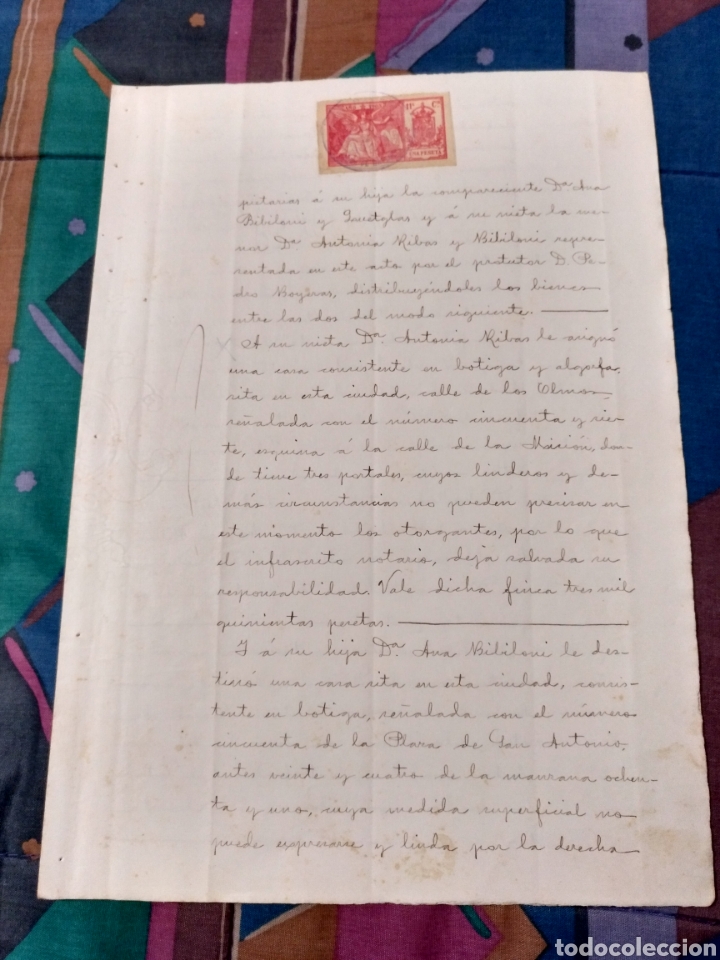 putarias á su hija la compareciente Dª Ana
Bibiloni y y á su nieta la me-
nor Dª Antonia Ribas y Bibiloni repre-
sentada en este acto por el protutor D. Pe-
dro Boyeras, distribuyéndoles los bienes
entre las dos del modo siguiente.
A su nieta Dª Antonia Ribas le asignó
una casa consistente en botiga y algorfa,
sita en esta ciudad, calle de los Olmos,
señalada con el número cincuenta y sie-
te, esquina á la calle de la Misión, don-
de tiene tres portales, cuyos linderos y de-
más circunstancias no pueden precisar en
este momento los otorgantes, por lo que
el infrascrito notario, deja salvada su
responsabilidad. Vale dicha finca tres mil
quinientas pesetas.
Y á su hija Dª Ana Bibiloni le des-
tinó una casa sita en esta ciudad, consis-
tente en botiga, señalada con el número
cincuenta de la Plaza de San Antonio,
antes veinte y cuatro de la manzana ochen-
ta y uno, cuya medida superficial no
puede expresarse y linda por la derecha
todocoleccion